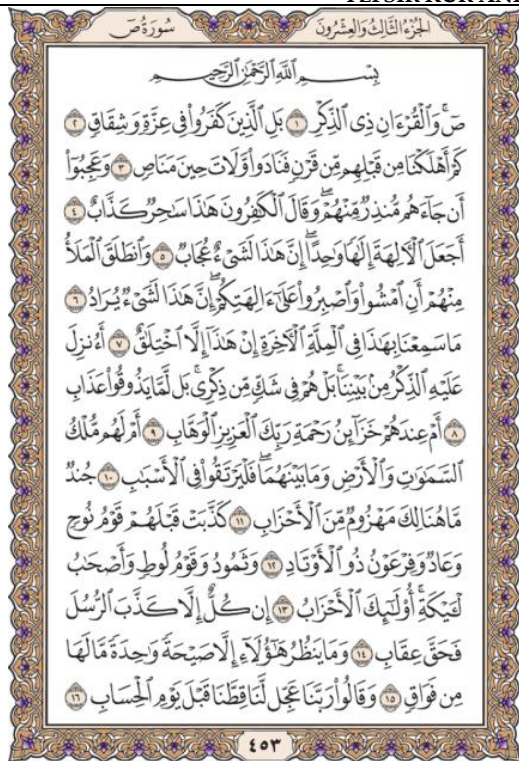 سُورَةُ صٓ
الجُزْءُ الثَّالِثُ وَالعِشْرُونَ
بِسْمِ اللَّهِ الرَّحْمَٰنِ الرَّحِيمِ
صٓۚ وَالْقُرْءَانِ ذِى الذِّكْرِ ١ بَلِ الَّذِينَ كَفَرُوا۟ فِى عِزَّةٍ وَشِقَاقٍ ٢
كَمْ أَهْلَكْنَا مِن قَبْلِهِم مِّن قَرْنٍ فَنَادَوا۟ وَّلَاتَ حِينَ مَنَاصٍ ٣ وَعَجِبُوٓا۟
أَن جَآءَهُم مُّنذِرٌ مِّنْهُمْۖ وَقَالَ الْكَٰفِرُونَ هَٰذَا سَٰحِرٌ كَذَّابٌ ٤
أَجَعَلَ الْءَالِهَةَ إِلَٰهًا وَٰحِدًاۖ إِنَّ هَٰذَا لَشَىْءٌ عُجَابٌ ٥ وَانطَلَقَ الْمَلَأُ
مِنْهُمْ أَنِ امْشُوا۟ وَاصْبِرُوا۟ عَلَىٰٓ ءَالِهَتِكُمْۖ إِنَّ هَٰذَا لَشَىْءٌ يُرَادُ ٦
مَا سَمِعْنَا بِهَٰذَا فِى الْمِلَّةِ الْءَاخِرَةِ إِنْ هَٰذَآ إِلَّا اخْتِلَٰقٌ ٧ أَءُنزِلَ
عَلَيْهِ الذِّكْرُ مِنۢ بَيْنِنَاۚ بَلْ هُمْ فِى شَكٍّ مِّن ذِكْرِىۚ بَل لَّمَّا يَذُوقُوا۟ عَذَابِ
٨ أَمْ عِندَهُمْ خَزَآئِنُ رَحْمَةِ رَبِّكَ الْعَزِيزِ الْوَهَّابِ ٩ أَمْ لَهُم مُّلْكُ
السَّمَٰوَٰتِ وَالْأَرْضِ وَمَا بَيْنَهُمَاۖ فَلْيَرْتَقُوا۟ فِى الْأَسْبَٰبِ ١٠ جُندٌ
مَّا هُنَالِكَ مَهْزُومٌ مِّنَ الْأَحْزَابِ ١١ كَذَّبَتْ قَبْلَهُمْ قَوْمُ نُوحٍ
وَعَادٌ وَفِرْعَوْنُ ذُو الْأَوْتَادِ ١٢ وَثَمُودُ وَقَوْمُ لُوطٍ وَأَصْحَٰبُ
لْـَٔيْكَةِۚ أُو۟لَٰٓئِكَ الْأَحْزَابُ ١٣ إِن كُلٌّ إِلَّا كَذَّبَ الرُّسُلَ
فَحَقَّ عِقَابِ ١٤ وَمَا يَنظُرُ هَٰٓؤُلَآءِ إِلَّا صَيْحَةً وَٰحِدَةً مَّا لَهَا
مِن فَوَاقٍ ١٥ وَقَالُوا۟ رَبَّنَا عَجِّل لَّنَا قِطَّنَا قَبْلَ يَوْمِ الْحِسَابِ ١٦
٤٥٣